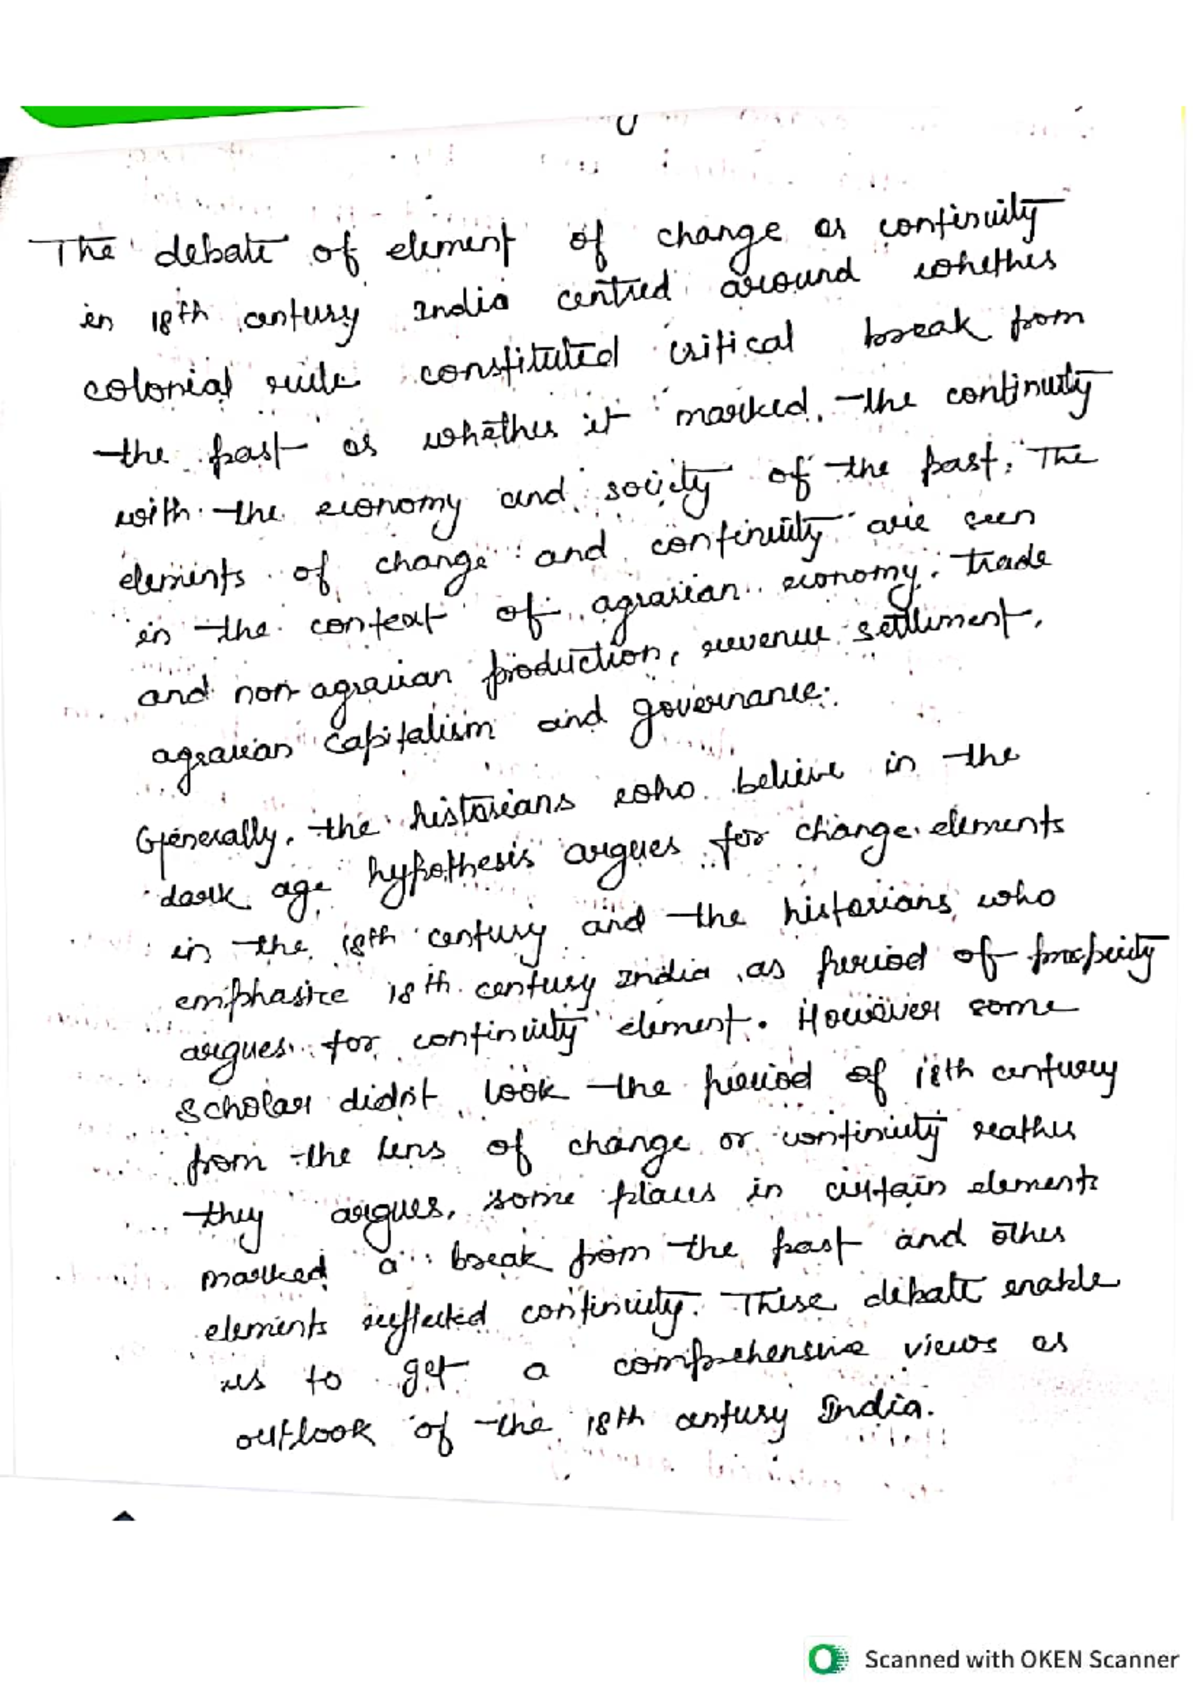 The debate of element of change or continuity
in 18th century India centred around whether
colonial rule constituted critical break from
the past or whether it marked, the continuity
with the economy and society of the past. The
elements of change and continuity are seen
in the context of agrarian economy, trade
and non agrarian production, revenue settlement,
agrarian capitalism and governance.
Generally, the historians who believe in the
dark age hypothesis argues for change elements
in the 18th century and the historians who
emphasize 18th century India as period of prosperity
argues for continuity element. However some
scholar didn't look the period of 18th century
from the lens of change or continuity rather
they argues, some places in certain elements
marked a break from the past and other
elements reflected continuity. These debate enable
us to get a comprehensive views or
outlook of the 18th century India.
Scanned with OKEN Scanner